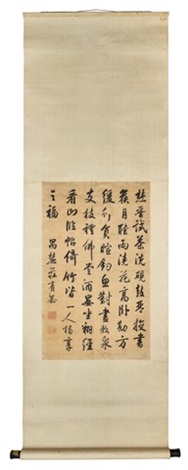 焚香試茶洗硯鼓琴校書
候月聽雨澆花高臥勘方
經行負暄釣魚對畫漱泉
支杖禮佛嘗酒晏坐翻經
看山臨帖倚竹皆一人獨享
之福
莊有恭